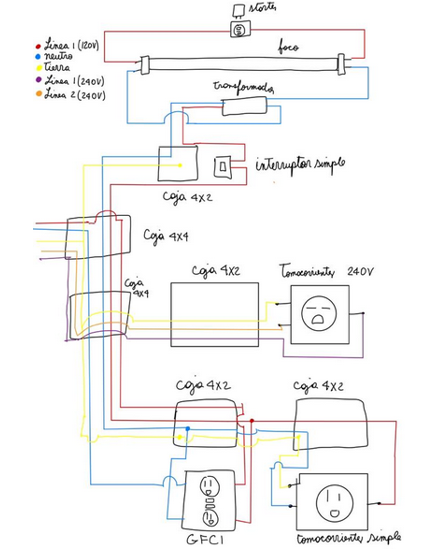 starter
foco
Linea 1 (120V)
neutro
tierra
Linea 1 (240V)
Linea 2 (240V)
transformador
interruptor simple
Caja 4x2
Caja 4x4
Caja 4x2
Tomacorriente 240V
Caja
4x4
Caja 4x2
Caja 4x2
GFCI
tomacorriente simple